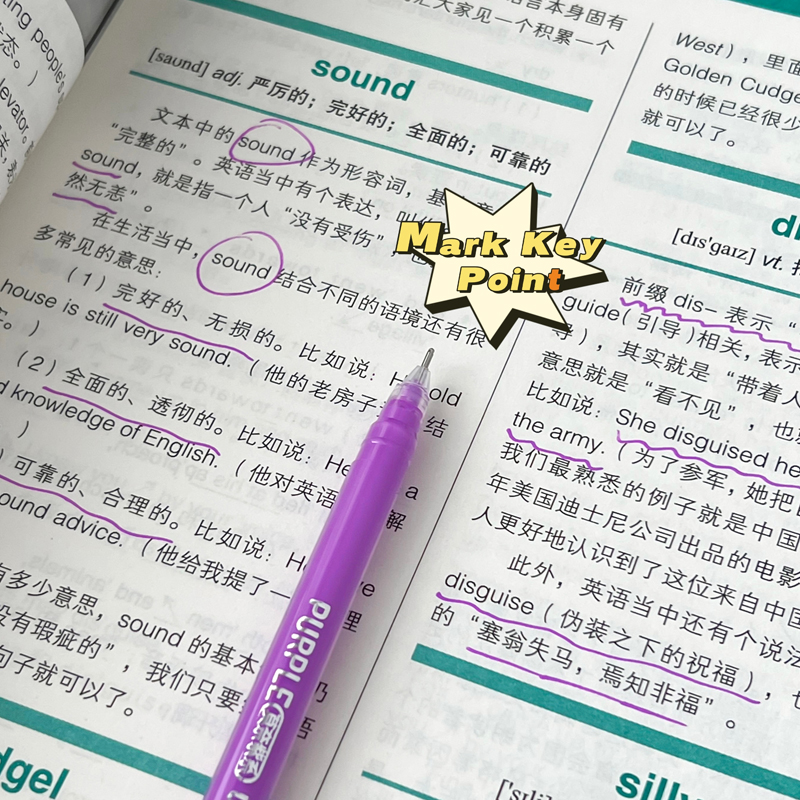 ting people's
态。）
levator.
言本身固有
大家见一个积累一个
sound
[saʊnd] adj. 严厉的；完好的；全面的；可靠的
文本中的 sound 作为形容词，基
“完整的”。英语当中有个表达，叫
sound，就是指一个人“没有受伤”
然无恙”。
在生活当中，sound 结合不同的语境还有很
多常见的意思：
（1）完好的、无损的。比如说：H old
house is still very sound.（他的老房子
）
（2）全面的、透彻的。比如说：He a
d knowledge of English.（他对英语 解
）
）可靠的、合理的。比如说：He ve
ound advice.（他给我提了一
有多少意思，sound 的基本
没有瑕疵的”，我们只要
句子就可以了。
dgel
West），里面
Golden Cudge
的时候已经很少
就可以了。
di
[dɪsˈgaɪz] vt.
前缀 dis– 表示“
guide（引导）相关，表示
导），其实就是“带着人
意思就是“看不见”，也
比如说：She disguised he
the army.（为了参军，她把
我们最熟悉的例子就是中国
年美国迪士尼公司出品的电影
人更好地认识到了这位来自中国
此外，英语当中还有个说法
disguise（伪装之下的祝福），也
的“塞翁失马，焉知非福”。
silly
Mark Key
Point
PURPLE